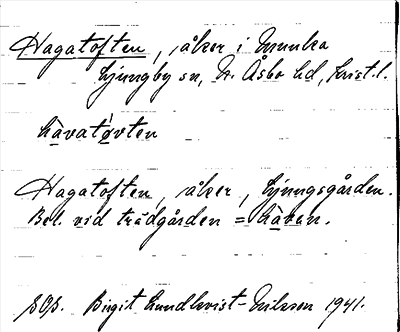 Hagatoften, åker i Munka
Ljungby sn, N. Åsbo hd, Krist. l.
hàvatǿvten
Hagatoften, åker, Ljungsgården.
Bel. vid trädgården = hàven.
Birgit Lundkvist-Nilsson 1941.